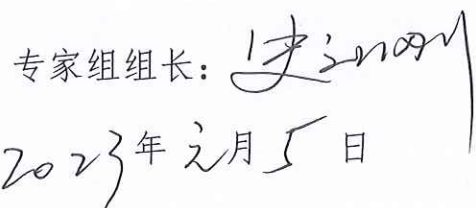 专家组组长：
2023年元月5日